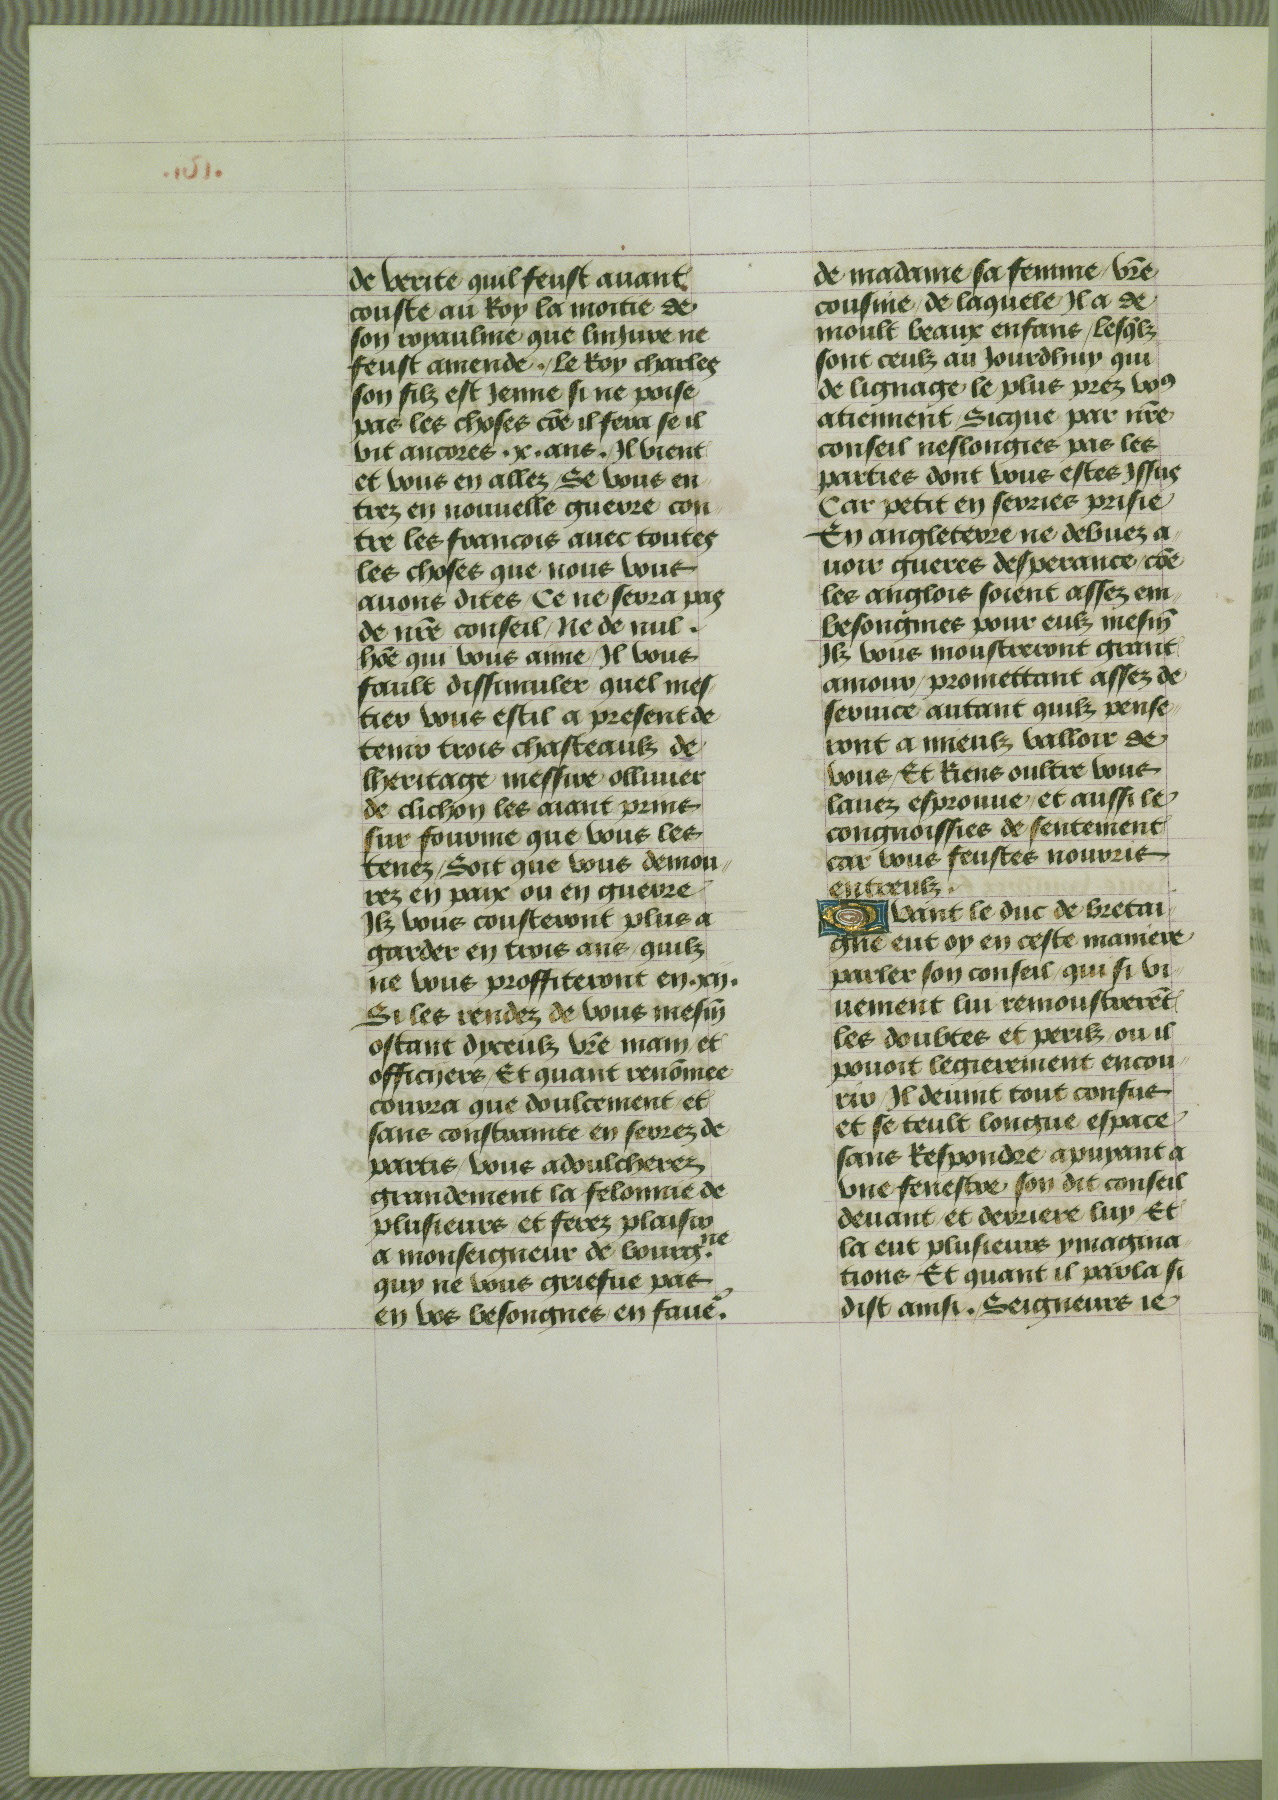 de verite quil feust auant
couste au Roy la moitie de
son royaulme que liniure ne
feust amende . / Le Roy charles
son filz est Jenne si ne poise
pas les choses cōe il fera se il
vit ancores . x . ans . Jl vient
et vous en allez / Se vous en
trez en nouuelle guerre con
tre les francois auec toutes
les choses que nous vous
auons dites / Ce ne sera pas
de nr̄e conseil / Ne de nul .
hōe qui vous aime / Jl vous
fault dissimuler quel mes
tier vous est il a present de
tenir trois chasteaulz de
lheritage messire olliuier
de clichon les aiant prins
sur fourme que vous les
tenez / Soit que vous demou
rez en paix ou en guerre
Jlz vous cousteront plus a
garder en trois ans quilz
ne vous proffiteront en . xij .
Si les rendez de vous mesm̄
ostant dyceulz vr̄e main et
officyers / Et quant renōmee
courra que doulcement et
sans constrainte en serez de
partis vous adoulcherez
grandement la felonnie de
plusieurs et ferez plaisir
a monseigneur de bourg.ne
quy ne vous griefue pas
en vos besongnes en faue᷑.
de madame sa femme / vr̄e
cousine / de laquele Jl a de
moult beaux enfans / lesq̄lz
sont ceulz au Jourdhuy qui
de lignage le plus prez voꝰ
atiennent / Sicque par nr̄e
conseil neslongies pas les
parties dont vous estes Jssus
Car petit en serries prisie
En angleterre ne debuez a
uoir gueres desperance / cōe
les anglois soient assez em
besongnies pour eulz mesm̄
Jlz vous moustreront grant
amour / promettant assez de
seruice autant quilz pense
ront a mieulz valloir de
vous / Et Riens oultre vous
lauez esprouue / et aussi le
congnoissies de sentement
car vous feustes nourris
entreulz .
Quant le duc de bretai
gne eut oy en ceste maniere
parler son conseil / qui si vi
uement lui remoustrerēt
les doubtes et perilz / ou il
pouoit legierement encou
rir / Jl deuint tout confus
et se teult longue espace
sans Respondre apuyant a
vne fenestre / son dit conseil
deuant et derriere luy / Et
la eut plusieurs ymagina
tions / Et quant il parla si
dist ainsi . Seigneurs ie